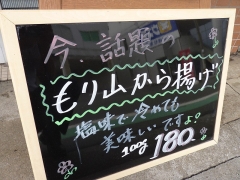 今、話題の
もり山から揚げ
塩味で冷めても
美味しいですよ。
100g 180-